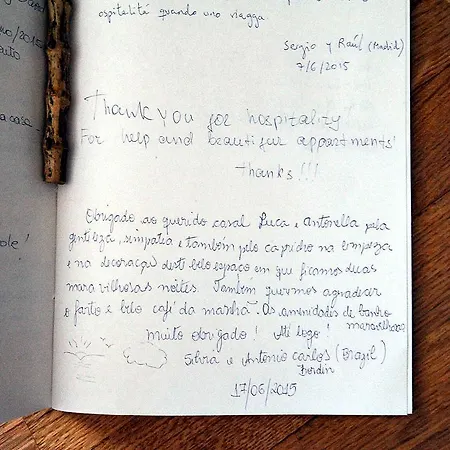 ospitalité quando uno viagga.
Sergio y Raúl (Madrid)
7/6/2015
/2015
a casa
ole!
Thank you for hospitality
For help and beautiful appartments!
thanks!!!
Obrigado ao querido casal Luca e Antonella pela
gentileza, simpatia e também pelo capricho na limpeza
e na decoração deste belo espaço em que ficamos duas
maravilhosas noites. Também queremos agradecer
o farto e belo café da manhã. As amenidades de banho
maravilhosas
Muito obrigado! Até logo!
Silvia e Antonio Carlos (Brazil)
Bordin
17/06/2015